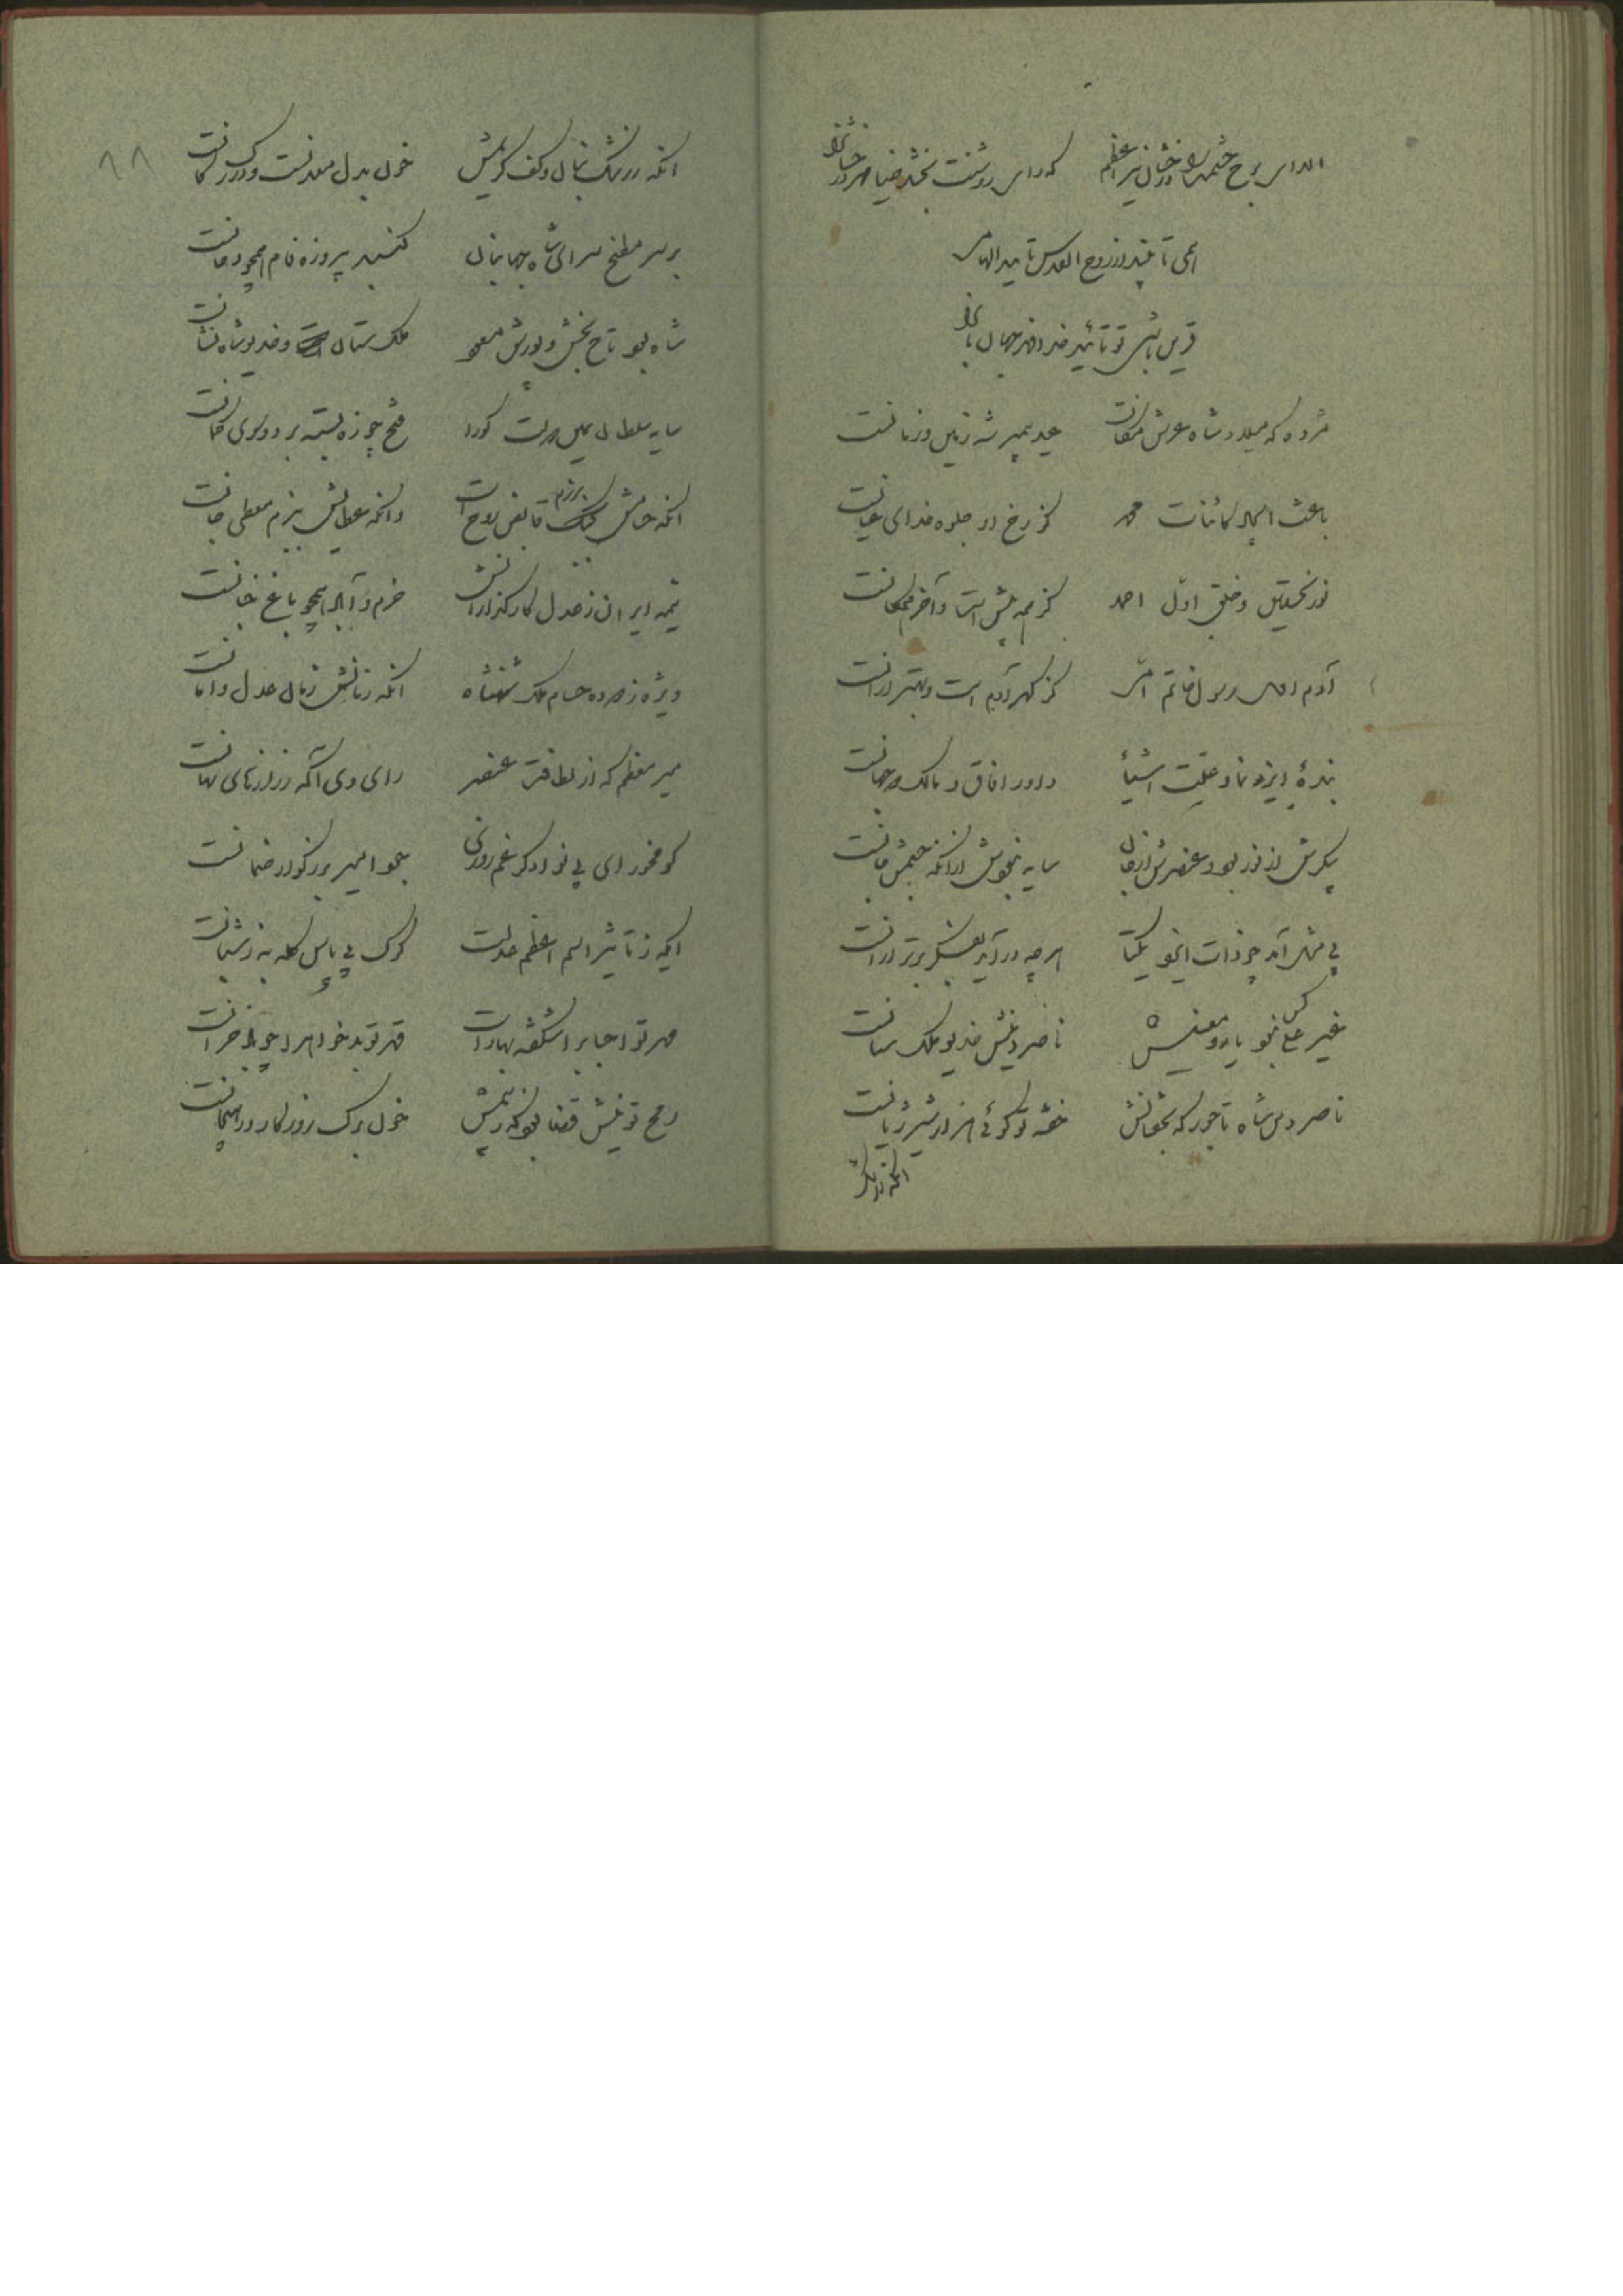 الا ای برج حشمت را درخشان نیر اعظم که رای روشنت بخشد ضیا مهر درخشانرا
همی تا بیند از روح القدس تایید الهامی
قرین باشی تو تائید خداوند جهان بانرا
مژده که میلاد شاه عرش مکانست عید پیمبر شه زمین و زمانست
باعث ایجاد کائنات محمد کز رخ او جلوه خدای عیانست
نور نخستین و خلق اول احمد کز همه پیش است و آخر همگانست
آدم اول رسول خاتم امی کز گهر آدم است و بهتر از آنست
بندهٔ ایزد نما و علت اشیأ داور افاق و مالک دو جهانست
پیکرش از نور بود و عنصرش از جان سایه نبودش از آنکه جسمش جانست
بی مثل آمد چو ذات ایزد یکتا هرچه در آید بفکر برتر از آنست
غیر علی کس نبود یار و معینش ناصر دینش خدیو ملک ستانست
ناصر دین شاه تاجور که بخفتانش خفته تو گوئی هزار شیر ژیانست
انکه ز رشک
انکه ز رشک بنان و کف کریمش خون بدل معدنست و در رگ کانست
بر سر مطبخ سرای شاه جهانبان گنبد پیروزه فام همچو دخانست
شاه بود تاج بخش و پورش مسعود ملک ستان است و خدیو شاه نشانست
سایه سلطان یمین دولت کورا فتح چو زه بسته بر دو سوی کمانست
انکه حسامش برزم قابض روح است وانکه عطایش ببزم معطی جانست
نیمه ایران ز عدل کارگذارانش خرم و آباد همچو باغ جنانست
ویژه ز حسام ملک شهنشاه انکه زمانش زمان عدل و امانست
میر معظم که از لطافت عنصر رای وی آگه ز رازهای نهانست
گو مخور ای بینوا دگر غم روزی جود امیر بزرگوار ضمانست
ایکه ز تاثیر اسم اعظم عدلت گرگ پی پاس گله به ز شبانست
مهر تو احباب را شکفته بهار است قهر تو بدخواه را چو باد خزانست
رمح تو نیش قضا بود که ز بیمش خون برگ روزگار در هیجانست